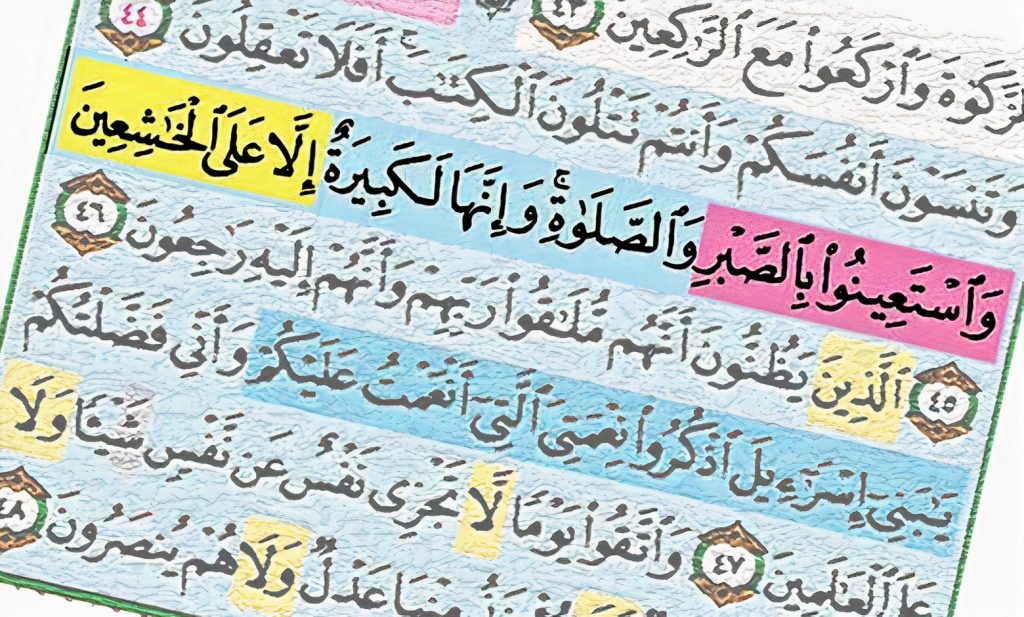 ٱلزَّكَوٰةَ وَٱرْكَعُوا۟ مَعَ ٱلرَّٰكِعِينَ ٤٣
وَتَنسَوْنَ أَنفُسَكُمْ وَأَنتُمْ تَتْلُونَ ٱلْكِتَٰبَ ۚ أَفَلَا تَعْقِلُونَ ٤٤
وَٱسْتَعِينُوا۟ بِٱلصَّبْرِ وَٱلصَّلَوٰةِ ۚ وَإِنَّهَا لَكَبِيرَةٌ إِلَّا عَلَى ٱلْخَٰشِعِينَ
٤٥ ٱلَّذِينَ يَظُنُّونَ أَنَّهُم مُّلَٰقُوا۟ رَبِّهِمْ وَأَنَّهُمْ إِلَيْهِ رَٰجِعُونَ ٤٦
يَٰبَنِىٓ إِسْرَٰٓءِيلَ ٱذْكُرُوا۟ نِعْمَتِىَ ٱلَّتِىٓ أَنْعَمْتُ عَلَيْكُمْ وَأَنِّى فَضَّلْتُكُمْ
عَلَى ٱلْعَٰلَمِينَ ٤٧ وَٱتَّقُوا۟ يَوْمًا لَّا تَجْزِى نَفْسٌ عَن نَّفْسٍ شَيْـًٔا وَلَا
مِنْهَا عَدْلٌ وَلَا هُمْ يُنصَرُونَ ٤٨